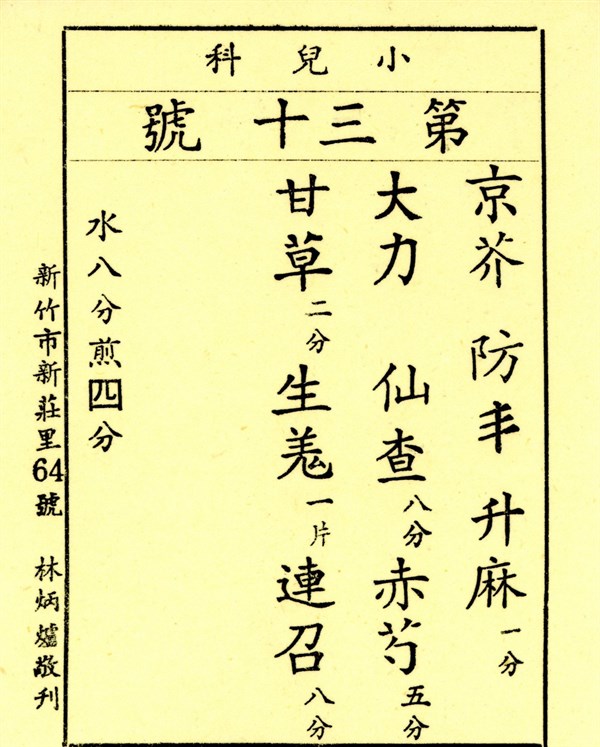 小兒科
第三十號
京芥 防丰 升麻一分
大力 仙查八分 赤芍五分
甘草二分 生羗一片 連召八分
水八分煎四分
新竹市新莊里64號 林炳爐敬刊